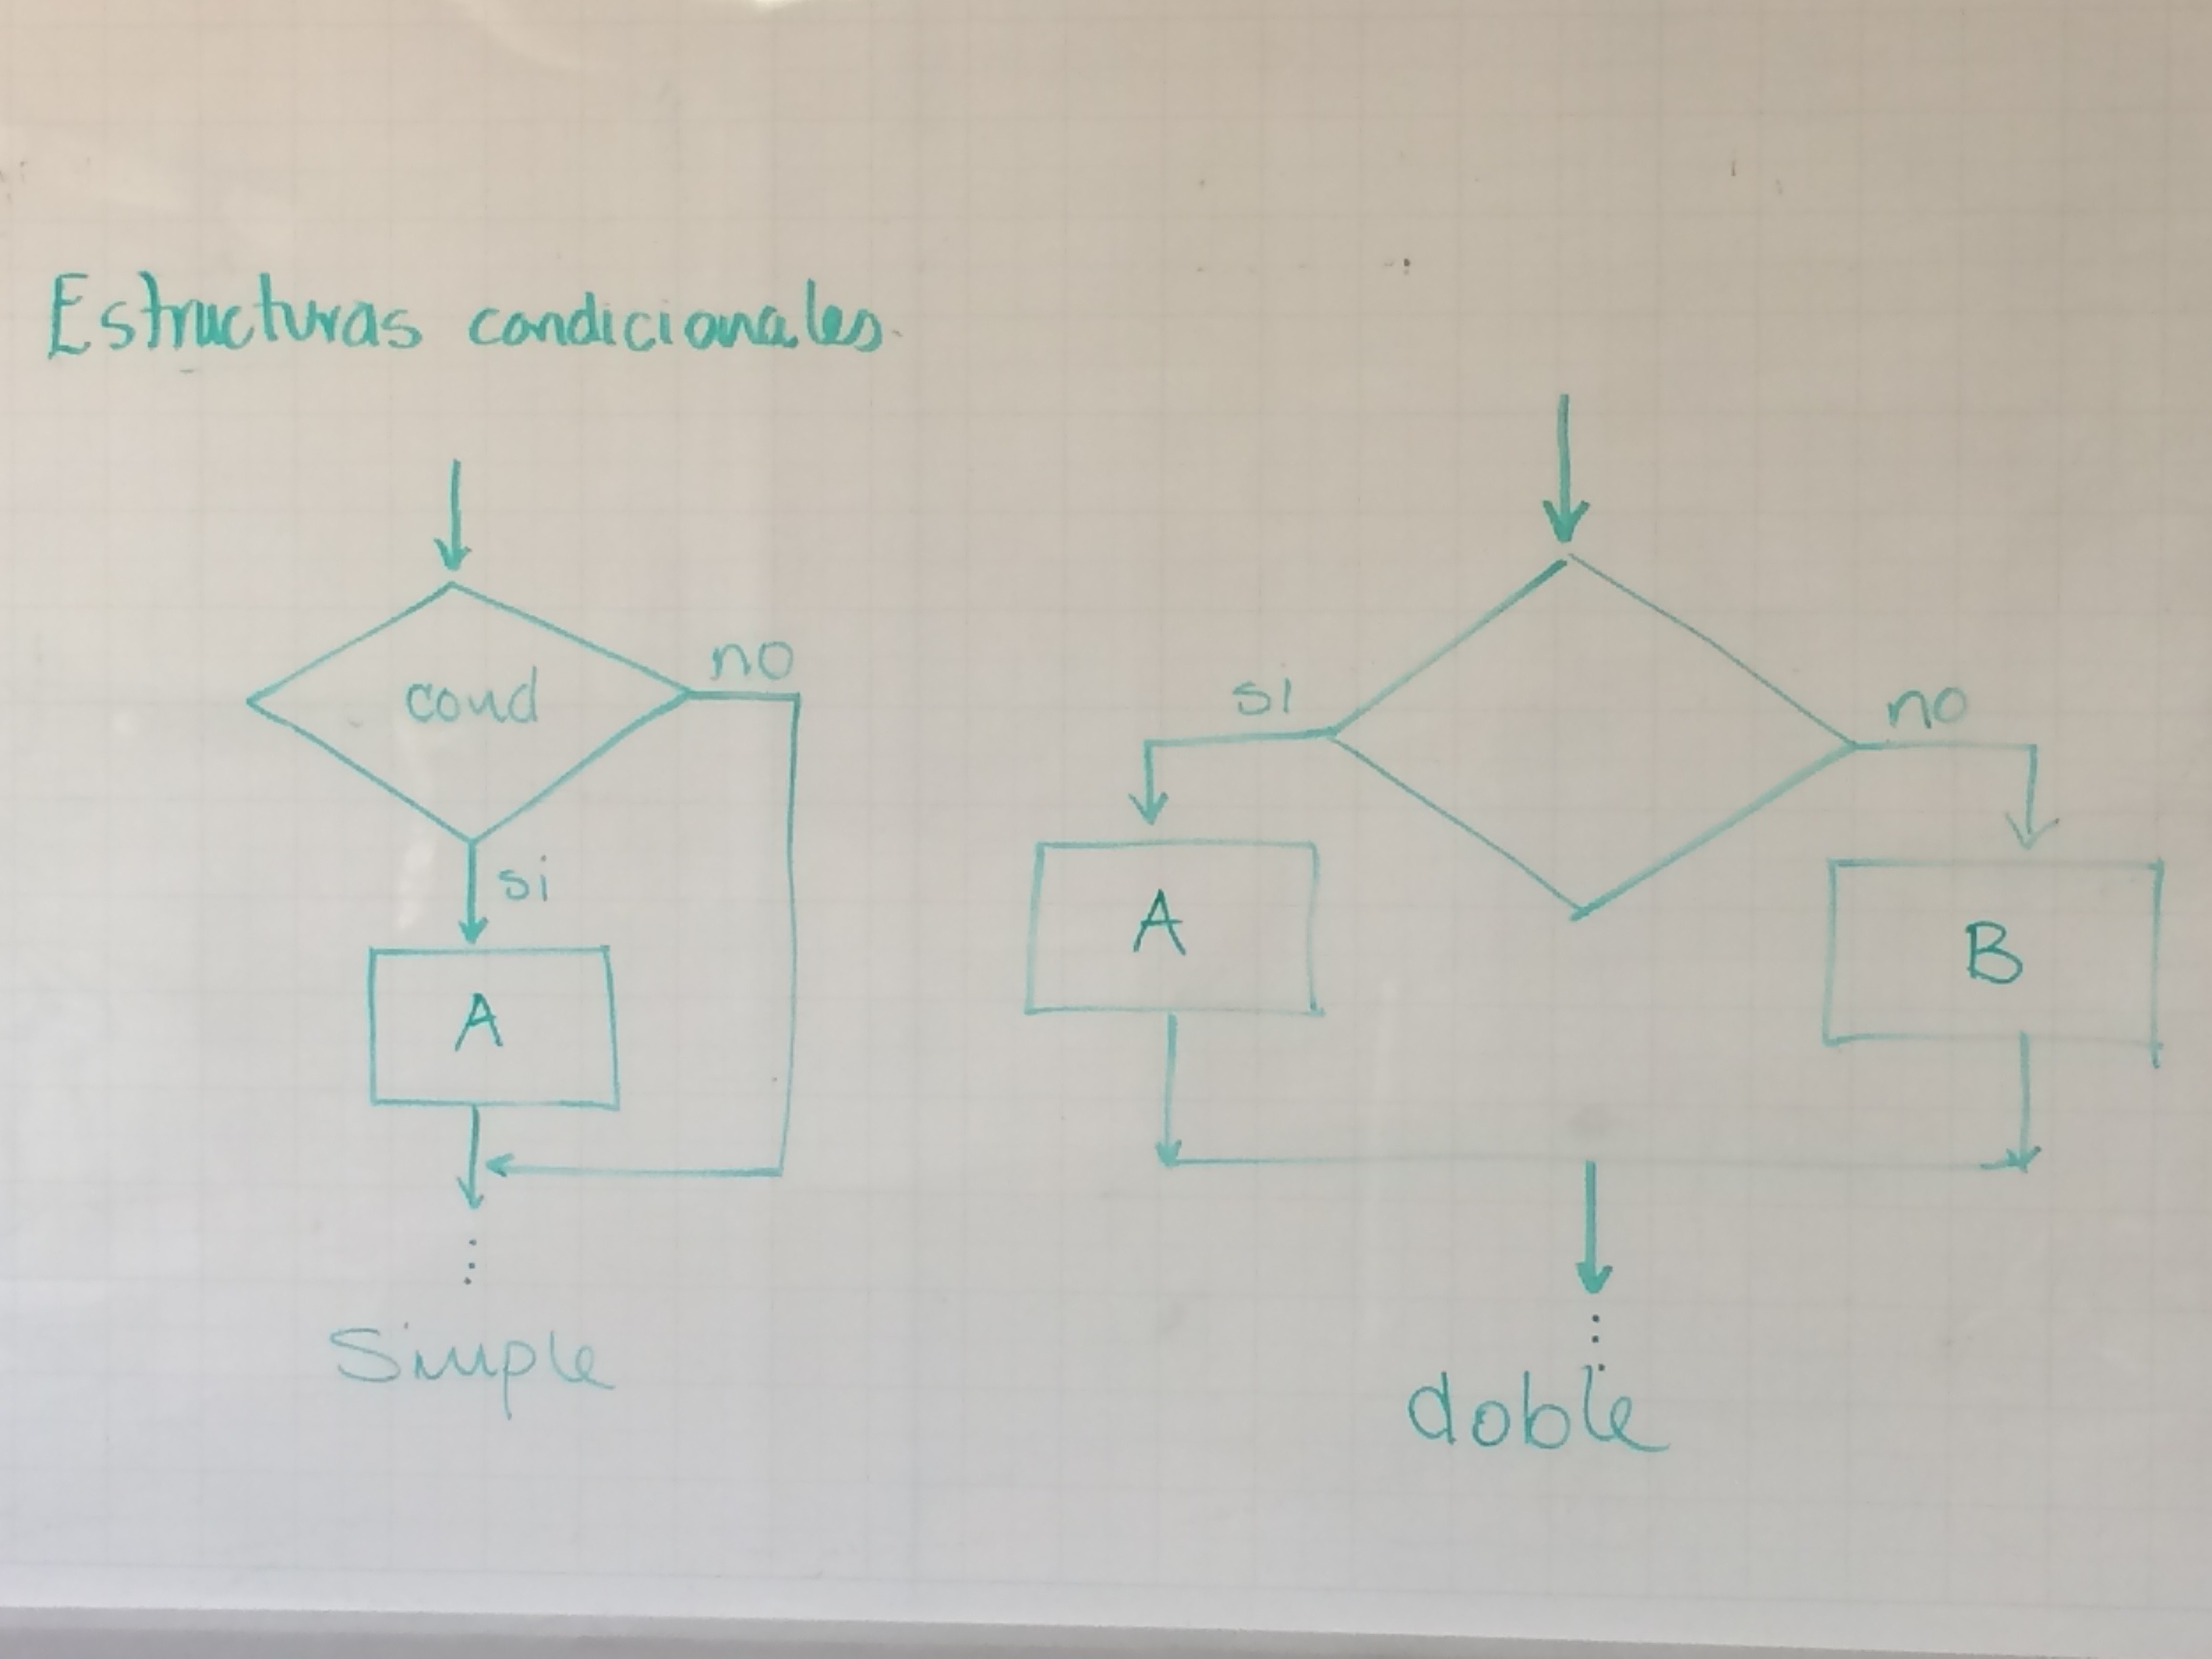 Estructuras condicionales.
cond
no
si
A
Simple
si
no
A
B
doble